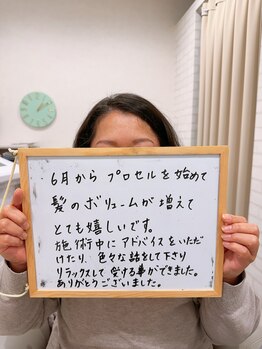 6月から プロセルを始めて
髪のボリュームが増えて
とても嬉しいです。
施術中にアドバイスをいただ
けたり、色々な話をして下さり
リラックスして受ける事ができました。
ありがとうございました。